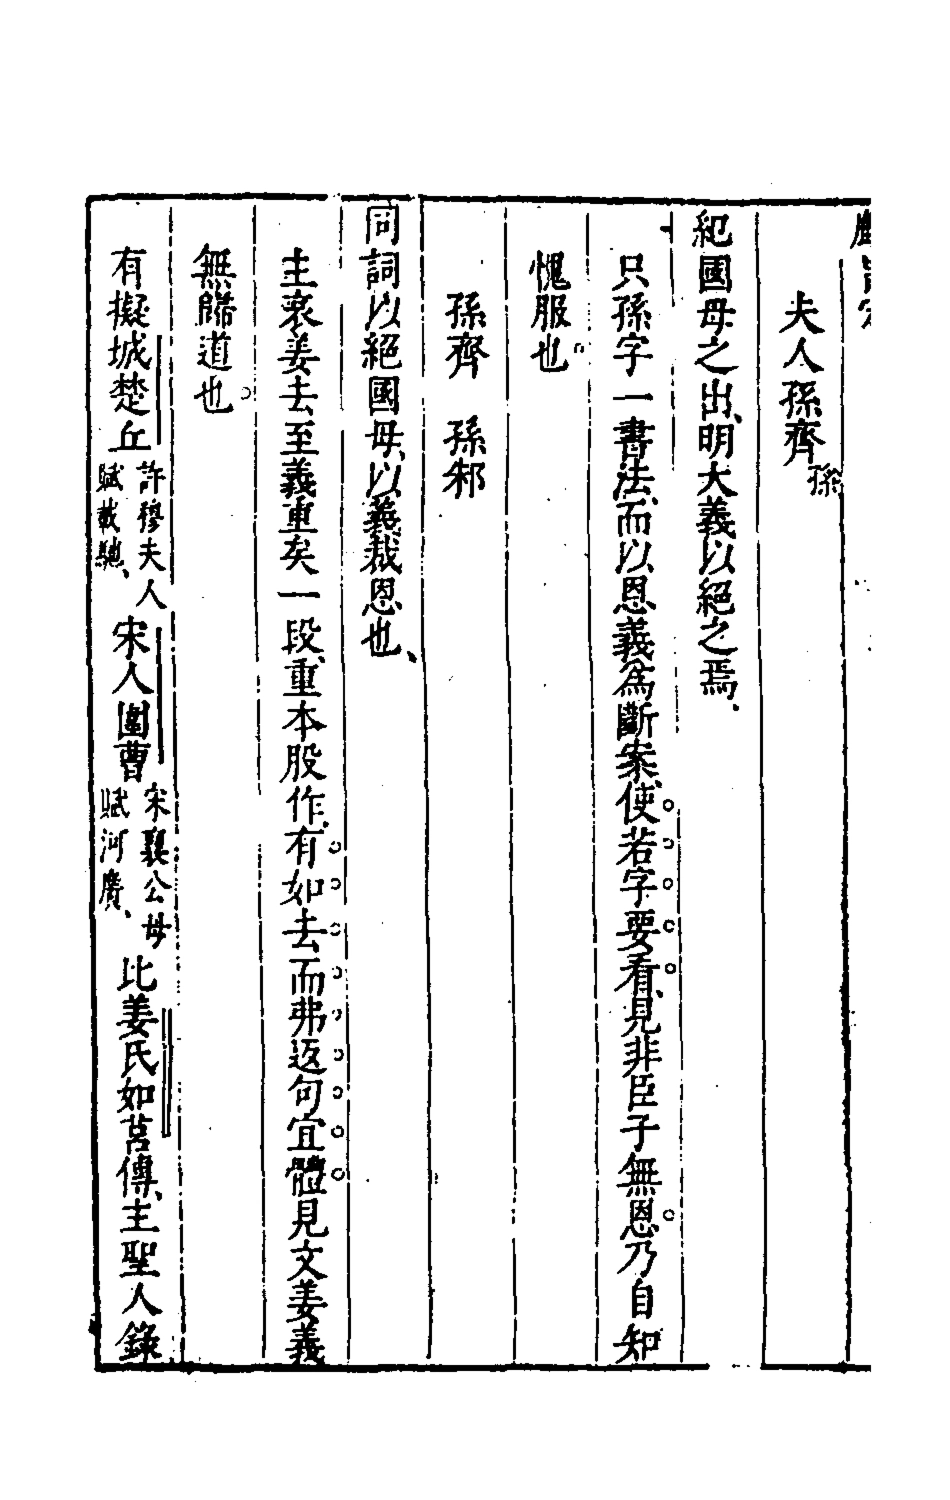 夫人孫齊孫
紀國母之出、明大義以絕之焉、
只孫字一書法、而以恩義為斷案、使若字要看、見非臣子無恩、乃自知
愧服也。
孫齊　孫邾
同詞以絕國母、以義裁恩也、
主哀姜去至義重矣一段、重本股作、有如去而弗返句、宜體見文姜義
無歸道也。
有擬城楚丘許穆夫人賦載馳、宋人圍曹宋襄公母賦河廣、比姜氏如莒傳、主聖人錄